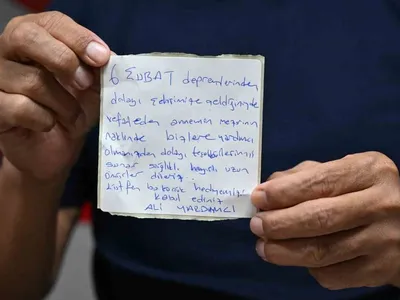 6 ŞUBAT depremlerinden
dolayı şehrimize geldiğinizde
vefat eden annemin mezarının
naklinde bizlere yardımcı
olmanızdan dolayı teşekkürlerimizi
sunar sağlıklı, hayırlı uzun
ömürler dileriz.
Lütfen bu küçük hediyemizi
kabul ediniz
ALİ YARDIMCI